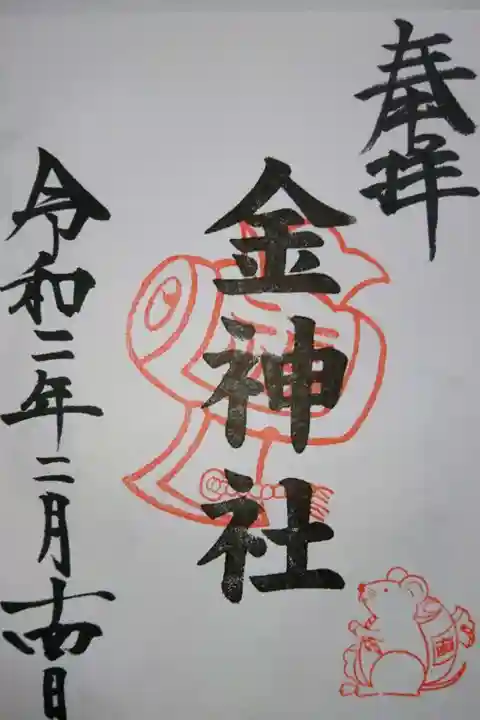 奉拝
金神社
令和二年二月十四日